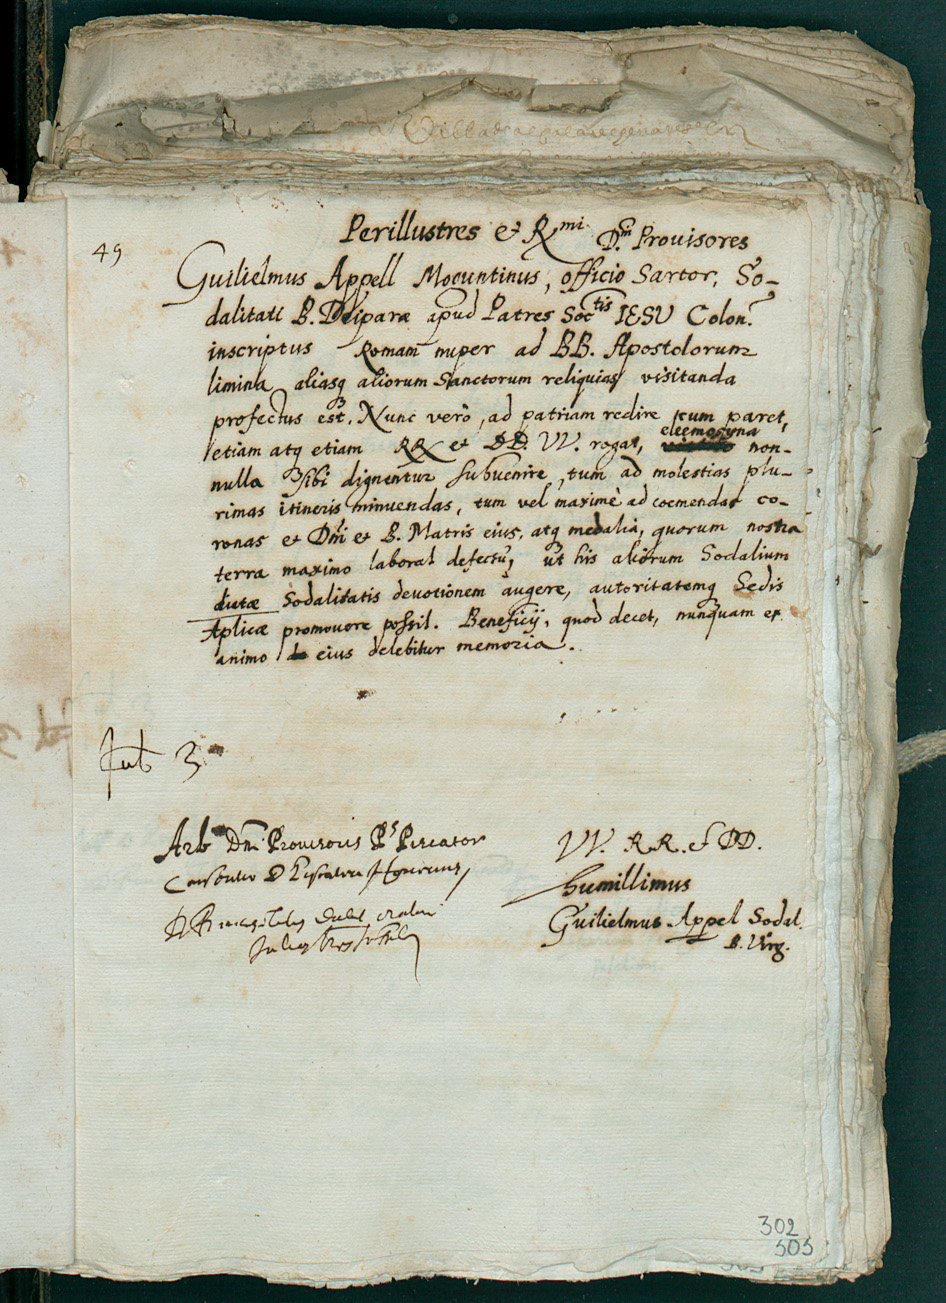 49
Perillustres et R.mi D.ni Prouisores
Guilielmus Appell Moguntinus, officio Sartor, So-
dalitati B. Deiparæ apud Patres Soctis IESU Colon.
inscriptus Romam nuper ad BB. Apostolorum
limina aliasq aliorum Sanctorum reliquias visitanda
profectus est. Nunc verò, ad patriam redire cum paret,
etiam atq etiam RR et DD. VV. rogat, eleemosyna non-
nulla sibi dignentur subuenire, tum ad molestias plu-
rimas itineris minuendas, tum vel maximè ad coemendas co-
ronas et Dni et B. Matris eius, atq medalia, quorum nostra
terra maximo laborat defectu, ut his aliorum Sodalium
dictæ Sodalitatis deuotionem augere, autoritatemq Sedis
Aplicæ promouere possit. Beneficij, quod decet, nunquam ex
animo eius delebitur memoria.
Jul 3
Arb Dni Prouisoris Piscator
VV. RR. et DD.
humillimus
Guilielmus Appel Sodal.
B. Virg.
302
303